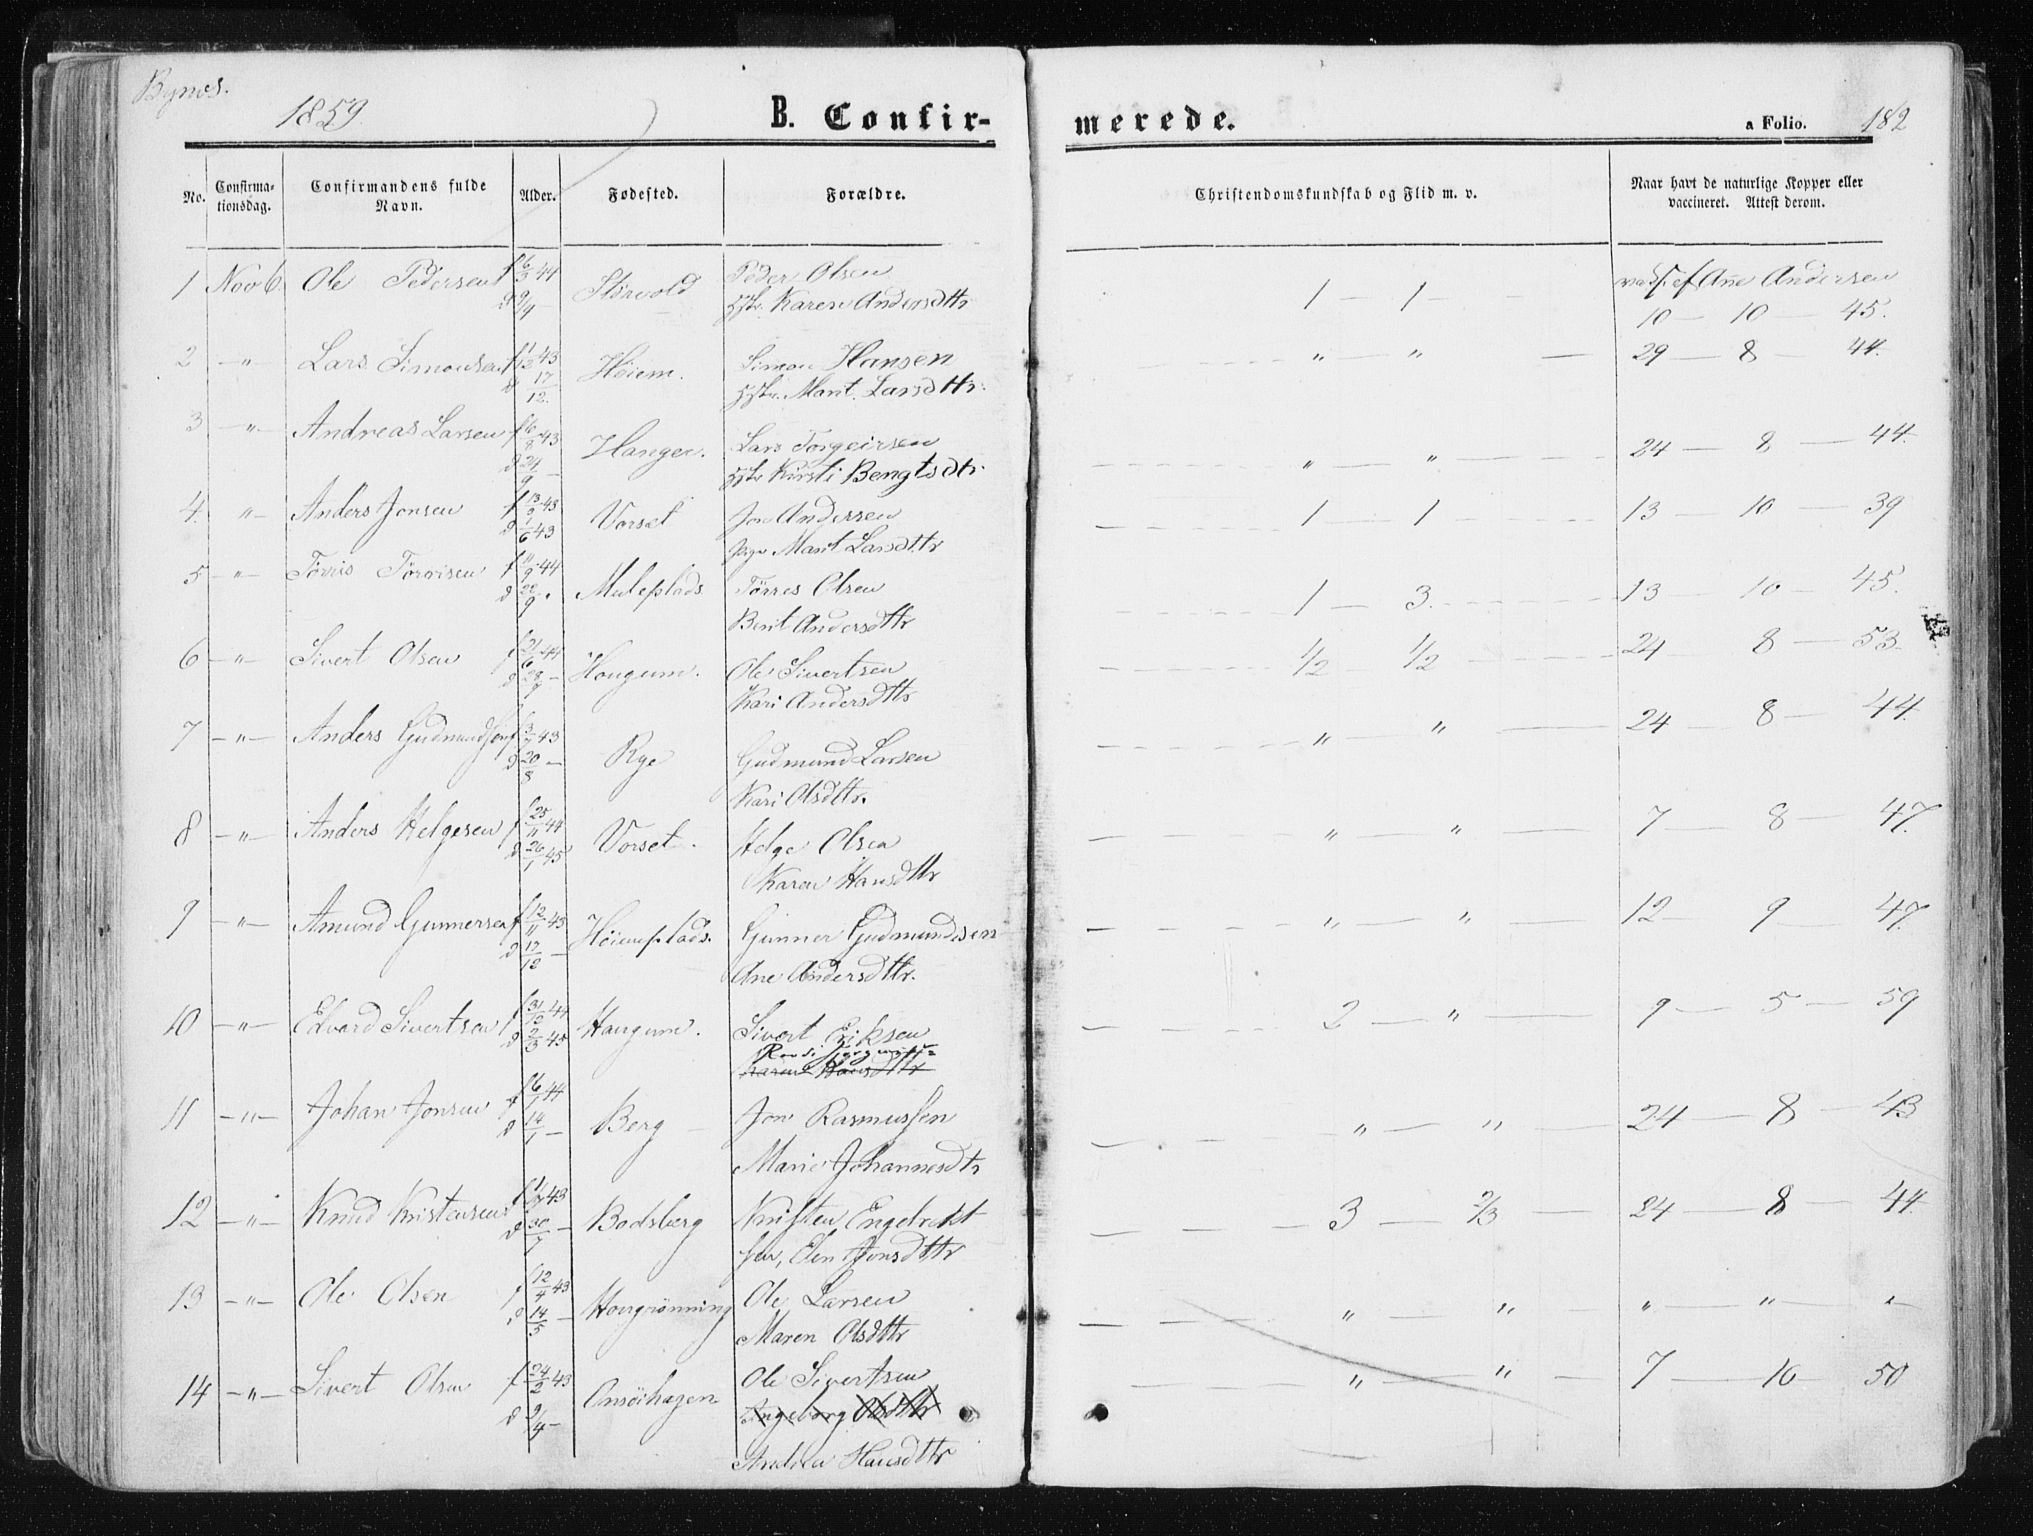 Bynes.
1859.
B. Confirmerede.
a Folio. 182
No. Confirmationsdag. Confirmandens fulde Navn. Alder. Fødested. Forældre. Christendomskundskab og Flid m. v. Naar havt de naturlige Kopper eller vaccineret. Attest derom.
1 Nov 6 Ole Pedersen f 6/3 44 Peder Olsen 1 — 1 — vacs. af Ane Andersen
d 9/4 — Karen Andersdtr 10 — 10 — 45.
2 —"— Lars Simonsen f 1/12 43 Høiem. Simon Hansen " " — 29 — 8 — 44.
d 17/12. Marit Larsdttr.
3 —"— Andreas Larsen f 6/8 43 Hangen. Lars Torgeirsen " — " — 24 — 8 — 44.
d 24/9 — Kirsti Bengtsdtr.
4. "— Anders Jonsen f 13/3 43 Vorset Jon Andersen 1 — 1 — 13 — 10 — 39
d 1/6 43 Marit Larsdttr
5 —"— Tørris Tørrisen f 11/9 44 Muleplads Tørres Olsen 1 — 3. 13 — 10 — 45.
d 22/9. Berit Andersdttr
6 —"— Sivert Olsen f 21/6 44 Hougum. Ole Sivertsen 1/2 — 1/2 — 24 8 — 53.
d 28/7 — Kari Andersdttr
7 —"— Anders Gudmundsen f 3/7 43 Rye Gudmund Larsen " — " — 24 — 8 — 44.
d 20/8 — Kari Olsdttr.
8 —"— Anders Helgesen f 25/11 44 Vorset. Helge Olsen " — " — 7 — 8 — 47.
d 26/1 45 Karen Hansdttr
9 —"— Amund Gunnersen f 12/11 43 Høiemsplads. Gunner Gudmundsen " — " — 12 — 9 — 47.
d 17/12 — Ane Andersdttr.
10 —"— Edvard Sivertsen f 31/12 44 Haugum. Sivert Eriksen 2 — " — 9 — 5 — 59
d 2/3 45
Karen Hansdttr
11 —"— Johan Jonsen f 6/1 44 Berg — Jon Rasmussen " — " — 24 — 8 — 43
d 14/1 — Marie Johannesdtr
12 —"— Knud Kristensen f 1/7 43 Bodsberg Kristen Engebrekt 3 — 2/3 — 24 — 8 — 44.
d 30/7 — sen, Elen Jonsdttr
13 —"— Ole Olsen f 12/4 43 Hovgrønning Ole Larsen " — " — " — " — "
d 14/5 — Maren Olsdttr
14 —"— Sivert Olsen f 24/2 43 Onsøihagen Ole Sivertsen " — " — 7 — 10 — 50
d 9/4 — Ingeborg Olsdttr
Andrea Hansdttr